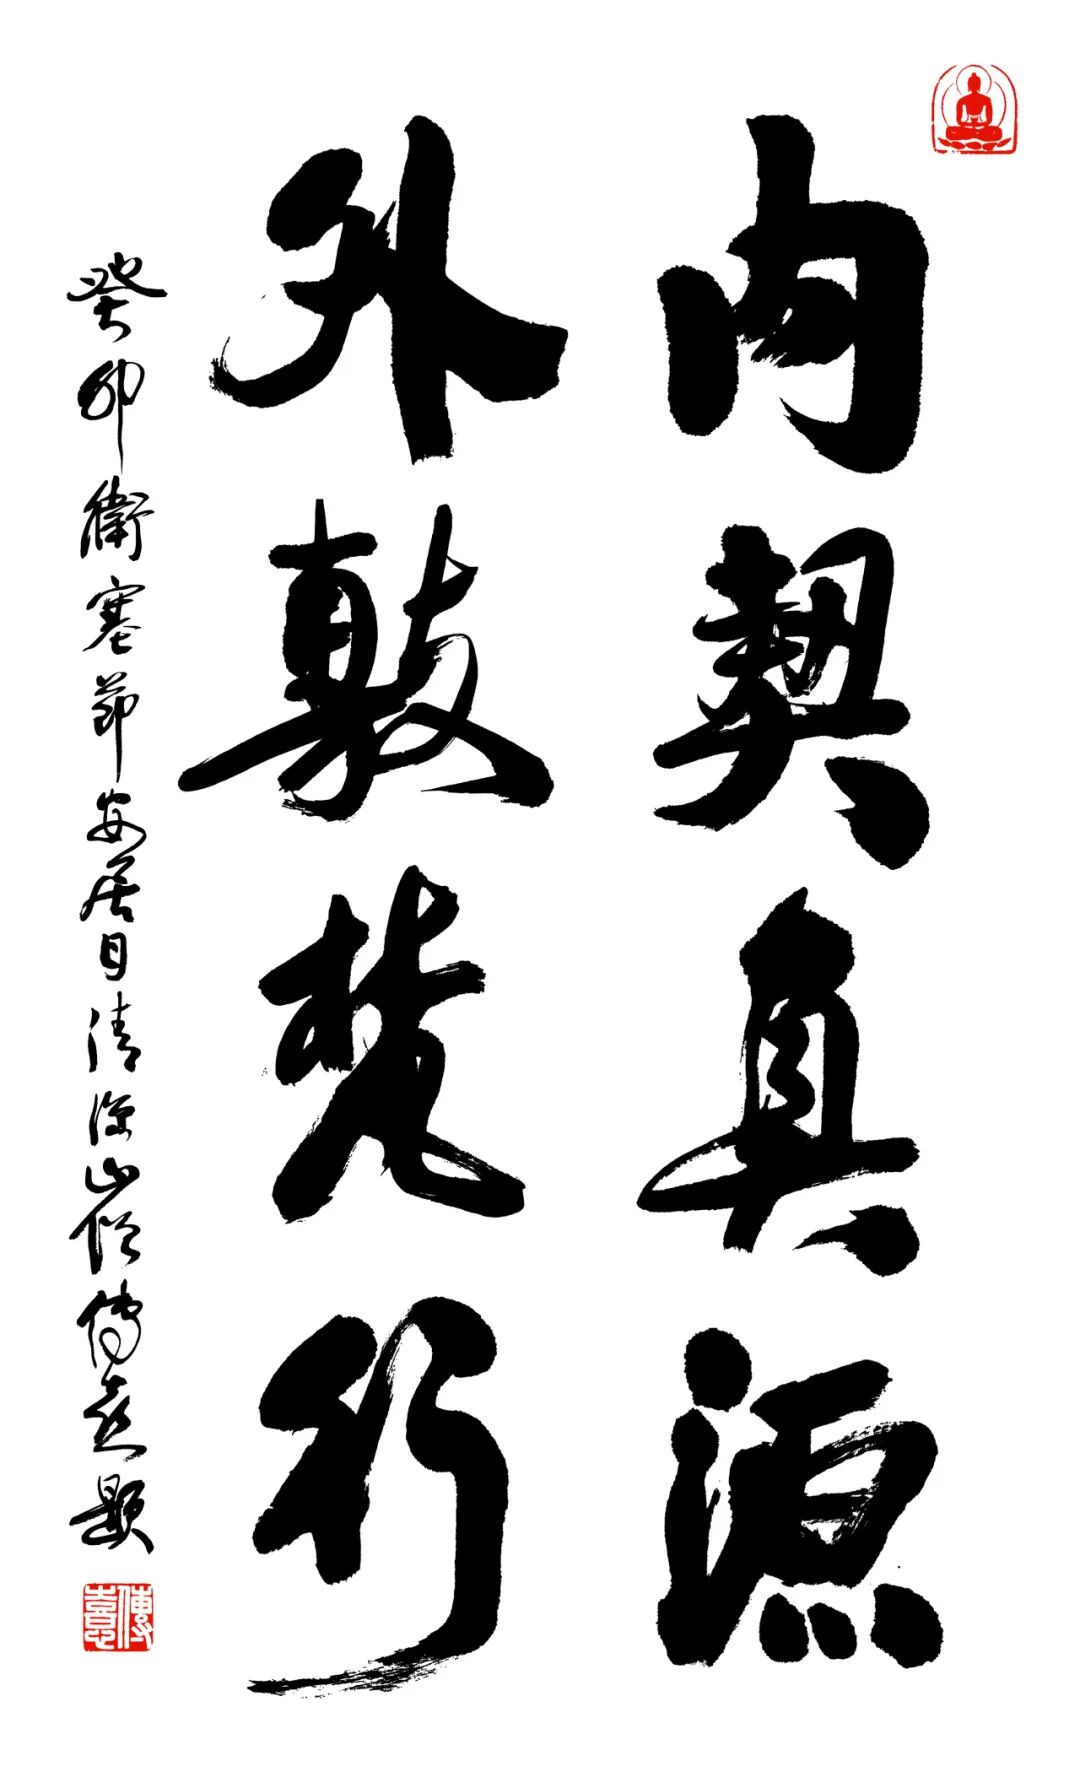 內契真源
外敦梵行
癸卯衛塞節安居日清涼山僧傳意題
傳意